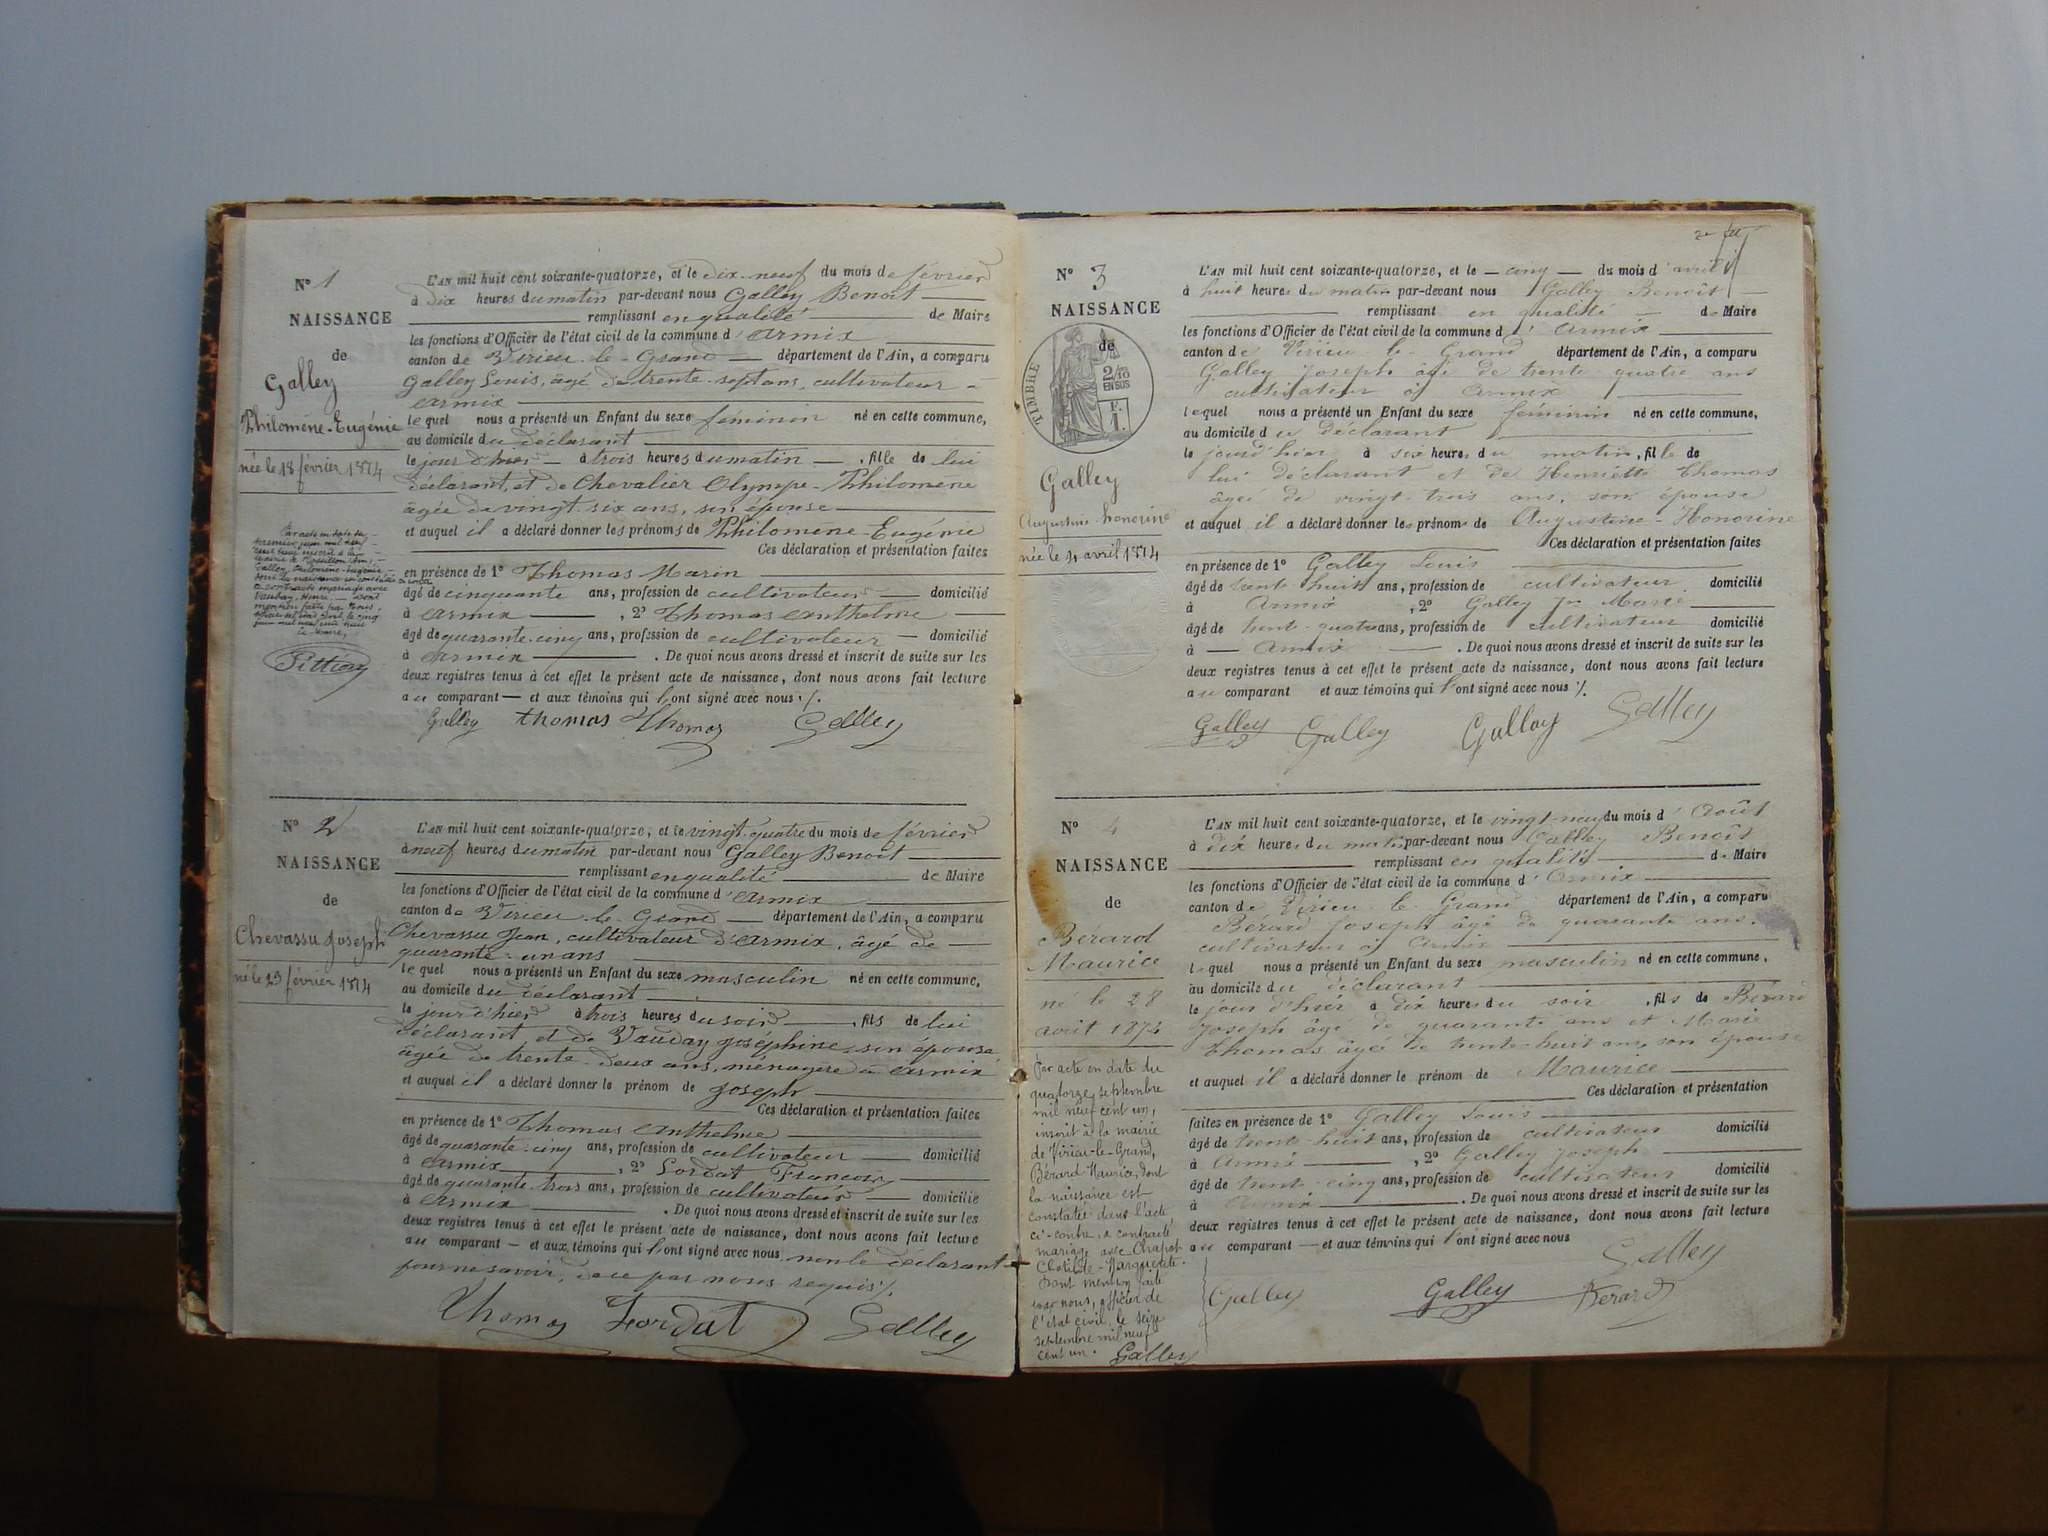 N° 1
NAISSANCE
de
Galley
Philomène-Eugénie
née le 18 février 1874
Par acte en date du
premier juin mil neuf
cent huit inscrit à la
mairie de Rossillon (Ain),
Galley, Philomène-Eugénie
dont la naissance est constatée ci-contre
a contracté mariage avec
Dont
mention faite par nous,
le cinq
juin mil neuf cent huit
Le Maire,
Pittion
L'AN mil huit cent soixante-quatorze, et le dix-neuf du mois de février
à dix heures du matin par-devant nous Galley Benoit
remplissant en qualité de Maire
les fonctions d'Officier de l'état civil de la commune d'Armix
canton de Virieu-le-Grand département de l'Ain, a comparu
Galley Louis, âgé de trente-sept ans, cultivateur à
Armix
lequel nous a présenté un Enfant du sexe féminin né en cette commune,
au domicile du déclarant
le jour d'hier à trois heures du matin, fille de lui
déclarant, et de Chevalier Olympe-Philomène
âgée de vingt-six ans, son épouse
et auquel il a déclaré donner les prénoms de Philomène-Eugénie
Ces déclaration et présentation faites
en présence de 1° Thomas Marin
âgé de cinquante ans, profession de cultivateur domicilié
à Armix, 2° Thomas Anthelme
âgé de quarante-cinq ans, profession de cultivateur domicilié
à Armix. De quoi nous avons dressé et inscrit de suite sur les
deux registres tenus à cet effet le présent acte de naissance, dont nous avons fait lecture
au comparant et aux témoins qui l'ont signé avec nous ./.
Galley Thomas Thomas Galley
N° 2
NAISSANCE
de
Chevassu Joseph
né le 23 février 1874
L'AN mil huit cent soixante-quatorze, et le vingt-quatre du mois de février
à neuf heures du matin par-devant nous Galley Benoit
remplissant en qualité de Maire
les fonctions d'Officier de l'état civil de la commune d'Armix
canton de Virieu-le-Grand département de l'Ain, a comparu
Chevassu Jean, cultivateur d'Armix, âgé de
quarante-un ans
lequel nous a présenté un Enfant du sexe masculin né en cette commune,
au domicile du déclarant
le jour d'hier à trois heures du soir, fils de lui
déclarant et de Vauday Joséphine, son épouse
âgée de trente-deux ans, ménagère à Armix
et auquel il a déclaré donner le prénom de Joseph
Ces déclaration et présentation faites
en présence de 1° Thomas Anthelme
âgé de quarante-cinq ans, profession de cultivateur domicilié
à Armix, 2° Lordat François
âgé de quarante-trois ans, profession de cultivateur domicilié
à Armix. De quoi nous avons dressé et inscrit de suite sur les
deux registres tenus à cet effet le présent acte de naissance, dont nous avons fait lecture
au comparant — et aux témoins qui l'ont signé avec nous non le déclarant
pour ne savoir, de ce par nous requis ./.
Thomas Lordat Galley
N° 3
NAISSANCE
de
TIMBRE
2/10
EN SUS
F.
1.
Galley
Augustine honorine
née le 4 avril 1874
L'AN mil huit cent soixante-quatorze, et le cinq du mois d'avril
à huit heures du matin par-devant nous Galley Benoît
remplissant en qualité de Maire
les fonctions d'Officier de l'état civil de la commune d'Armix
canton de Virieu-le-Grand département de l'Ain, a comparu
Galley Joseph âgé de trente-quatre ans
cultivateur à Armix
lequel nous a présenté un Enfant du sexe féminin né en cette commune,
au domicile du déclarant
le jourd'hier à six heures du matin, fille de
lui déclarant et de Henriette Thomas
âgée de vingt-trois ans, son épouse
et auquel il a déclaré donner les prénoms de Augustine-Honorine
Ces déclaration et présentation faites
en présence de 1° Galley Louis
âgé de trente huit ans, profession de cultivateur domicilié
à Armix, 2° Galley Jn Marie
âgé de trente-quatre ans, profession de cultivateur domicilié
à — Armix. De quoi nous avons dressé et inscrit de suite sur les
deux registres tenus à cet effet le présent acte de naissance, dont nous avons fait lecture
au comparant et aux témoins qui l'ont signé avec nous ./.
Galley Galley Galley Galley
N° 4
NAISSANCE
de
Bérard
Maurice
né le 28
août 1874
Par acte en date du
quatorze septembre
mil neuf cent un,
inscrit à la mairie
de Virieu-le-Grand,
Bérard Maurice, dont
la naissance est
constatée dans l'acte
ci-contre, a contracté
mariage avec Chapot
Clotilde-Marguerite.
Dont mention faite
par nous, officier de
l'état civil, le seize
septembre mil neuf
cent un. Galley
L'AN mil huit cent soixante-quatorze, et le vingt-neuf du mois d'Août
à dix heures du matin par-devant nous Galley Benoît
remplissant en qualité de Maire
les fonctions d'Officier de l'état civil de la commune d'Armix
canton de Virieu-le-Grand département de l'Ain, a comparu
Bérard Joseph âgé de quarante ans.
cultivateur à Armix
lequel nous a présenté un Enfant du sexe masculin né en cette commune,
au domicile du déclarant
le jour d'hier à dix heures du soir, fils de Bérard
Joseph âgé de quarante ans et Marie
Thomas âgée de trente-huit ans, son épouse
et auquel il a déclaré donner le prénom de Maurice
Ces déclaration et présentation
faites en présence de 1° Galley Louis
âgé de trente-huit ans, profession de cultivateur domicilié
à Armix, 2° Galley Joseph
âgé de trente-cinq ans, profession de cultivateur domicilié
à Armix. De quoi nous avons dressé et inscrit de suite sur les
deux registres tenus à cet effet le présent acte de naissance, dont nous avons fait lecture
au comparant — et aux témoins qui l'ont signé avec nous
Galley
Galley Galley Bérard